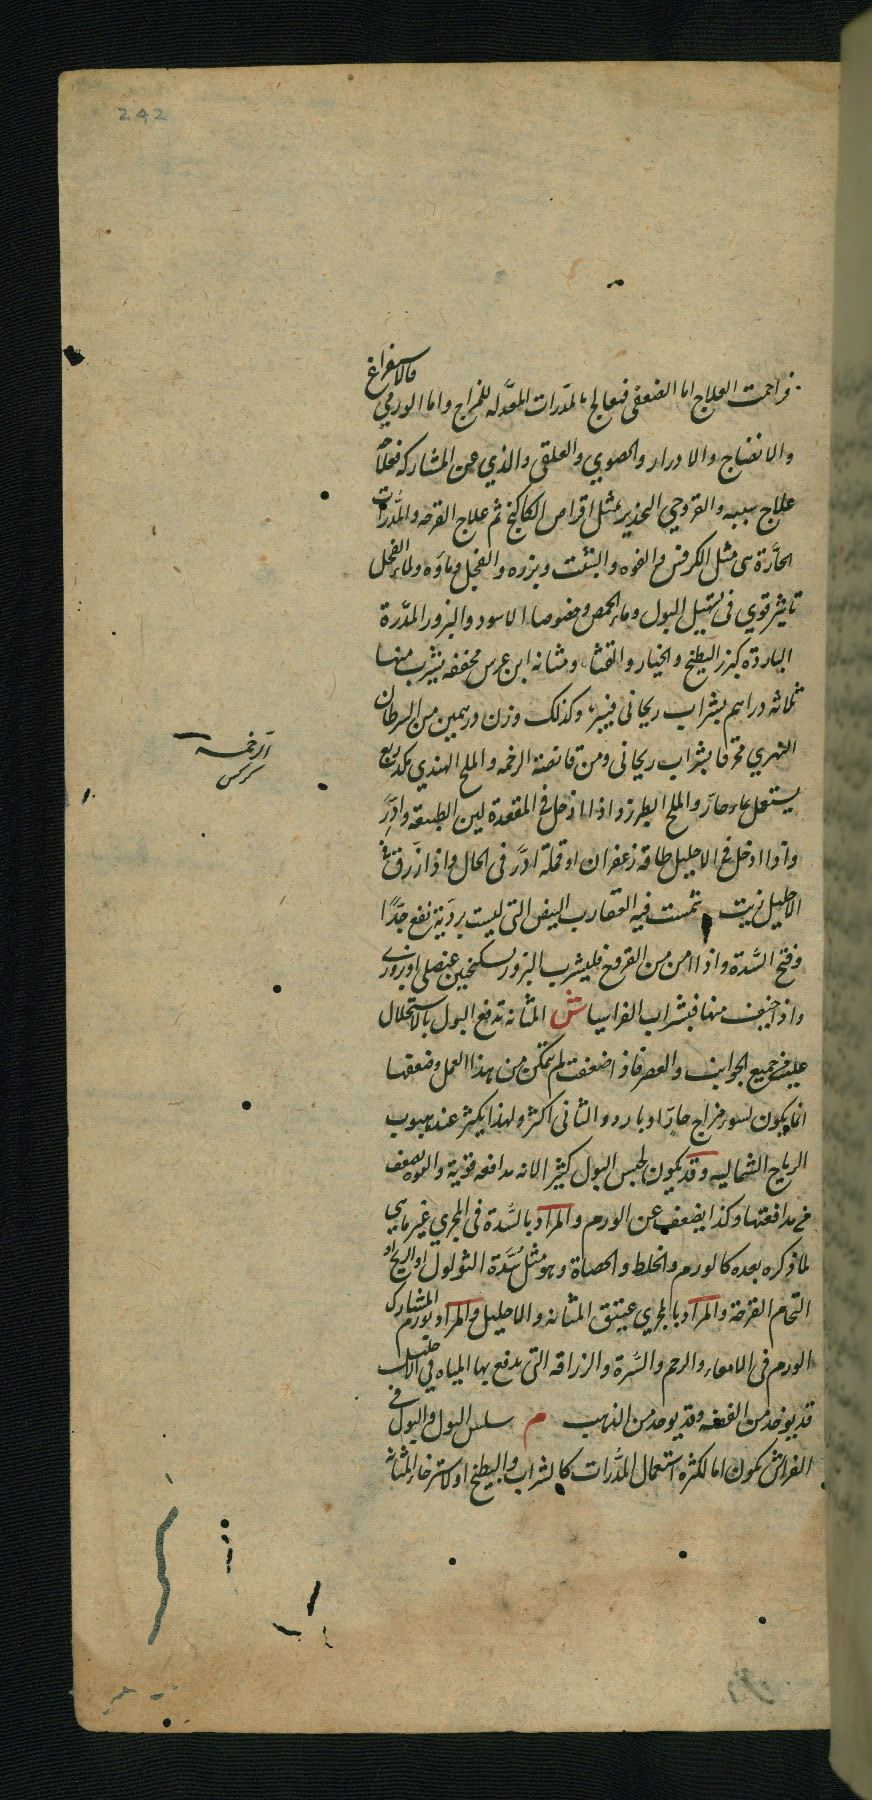 242
فزاحمت العلاج اما الضعفى فيعالج بالمدّرات المعدّله للمزاج واما الورمي فالاستفراغ
والانضاج والادرار والحصوي والعلقى والذي عن المشاركه فعلاجه
علاج سببه والقروحي التخدير بمثل اقراص الكاكنج ثم علاج القرحه والمدّرات
الحارّة هى مثل الكرفس والفوه والشبت وبزره والفجل وماؤه ولماء الفجل
تاثير قوي فى تسهيل البول وماء الحمص وخصوصا الاسود والبزور المدّرة
الباردة كبزر البطيخ والخيار والقثاء ومثانه ابن عرس مجففه يشرب منها
ثلاثه دراهم بشراب ريحانى فيبرئ وكذلك وزن درهمين من السرطان
النهري محرقا بشراب ريحانى ومن قانصة الرخمه والملح الهندي
يستعمل بماء حارّ والملح الطبرزد اذا ادخل فى المقعدة لين الطبيعة وادرّ
واذا ادخل فى الاحليل طاقة زعفران او قملة ادّر فى الحال واذا زّرق فى
الاحليل زيت شمست فيه العقارب البيض التى ليست بردّية نفع جدّا
وفتح السّدة واذا امن من القروح فليشرب البزور بسكنجبين عنصلى او بزورى
واذا خيف منها فبشراب الفراسيا ش المثانه تدفع البول بالاشتمال
عليه فى جميع الجوانب والعصر فاذا ضعفت لم تتمكن من هذا العمل وضعفها
انما يكون لسوء مزاج حارّ او بارد والثانى اكثر ولهذا يكثر عند هبوب
الرياح الشماليه وقد يكون لحبس البول كثيرا لانه مدافعه قوية والقوه تضعف
فى مدافعتها وكذا يضعف عن الورم والمراد بالسّدة فى المجري غير ماهي
لما ذكره بعده كالورم والخلط والحصاة وهو مثل سدّة الثولول او الريح او
التحام القرحة والمراد بالمجري عنق المثانه والاحليل والمراد بورم المشارك
الورم فى الامعاء والرحم والسّرة والزراقه التى يدفع بها المياه فى الاحليل
قد يوخذ من الفضه وقد يوخذ من الذهب م سلس البول والبول فى
الفراش يكون اما لكثره استعمال المدّرات كالشراب والبطيخ او لاسترخاء المثانه
الرخمـه
كركس